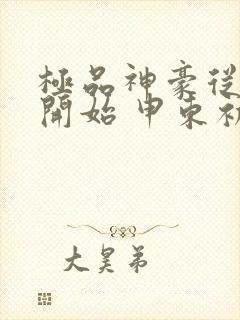 極品神豪從
開始 申東初
大昊弟